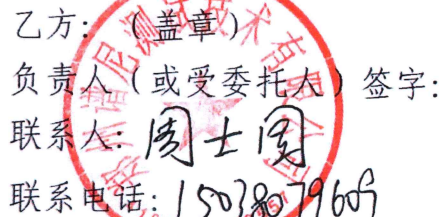 乙方：（盖章）
负责人（或受委托人）签字：
联系人：周士周
联系电话：15038079609